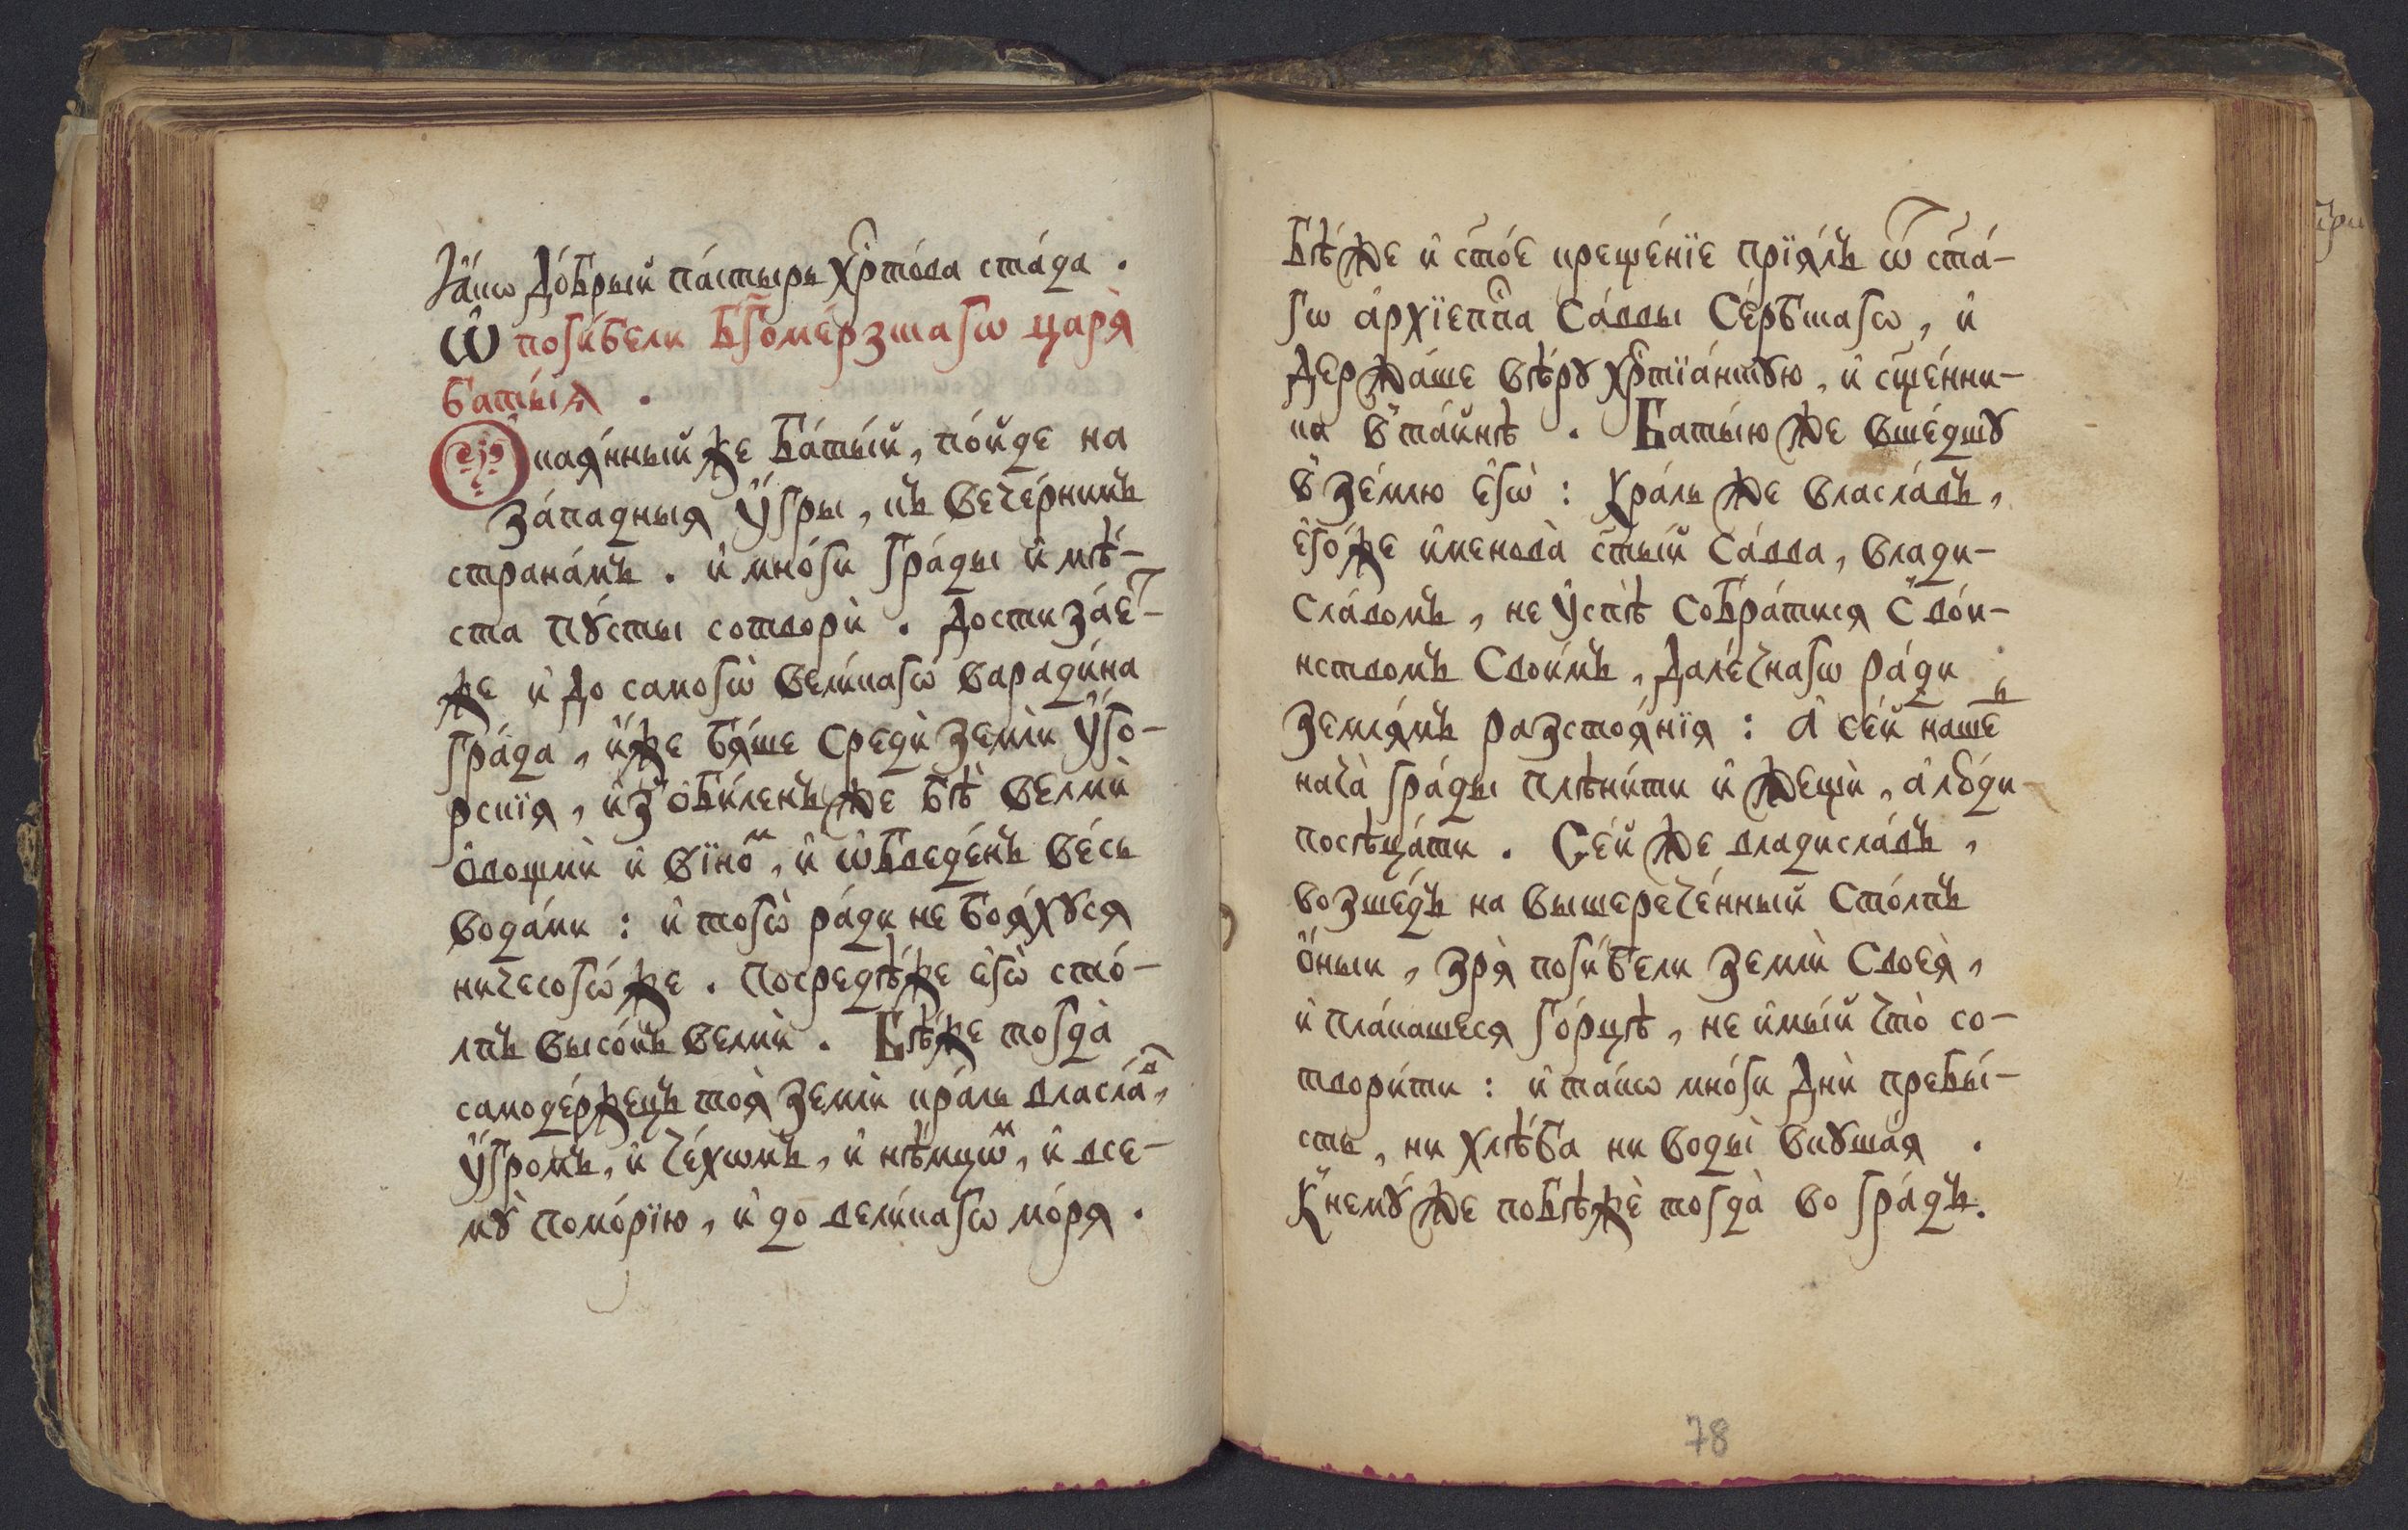 Ꙗ҆́кѡ до́брый па́стырь хрⷭ҇то́ва ста́да .
Ѡ҆ поги́бели бг҃оме́рзкагѡ царѧ̀
баты́ѧ .
Ѻ҆каѧ́нный же Ба́ты́й , по́йде на
за́падныѧ ᲂу҆́гры , къ вече́рнимъ
страна́мъ . и҆ мно́ги гра́ды и҆ мѣ́-
ста пꙋ́сты сотворѝ . Достиза́етъ-
же и҆ до самогѡ̀ вели́кагѡ варади́на
гра́да , и҆́же бѧ́ше средѝ землѝ ᲂу҆́го-
рскїѧ , и҆зъоби́ленъ же бѣ̀ велмѝ
ѻ҆вощмѝ и҆ вїно́м , и҆ ѡ҆бведе́нъ ве́сь
вода́ми : и҆ тогѡ̀ ра́ди не боѧ́хꙋсѧ
ничесогѡ́же . посредѣ́же є҆гѡ̀ сто́-
лпъ высо́къ велмѝ . Бѣ́же тогда̀
самоде́ржецъ тоѧ̀ землѝ кра́ль власла́в ,
ᲂу҆́громъ , и҆ че́хѡмъ , и҆ нѣ́мцѡм , и҆ все-
мꙋ̀ помо́рїю , и҆ до вели́кагѡ мо́рѧ .
Бѣ́же и҆ ст҃о́е креще́нїе прїѧ́лъ ѿ ст҃а́-
гѡ а҆рхїепⷭ҇па Са́ввы Се́рбскагѡ , и҆
держа́ше вѣ́рꙋ хрⷭ҇тїа́нскꙋю , и҆ сщ҃е́нни-
ки въ та́йнѣ . Баты́ю же вше́дшꙋ
въ зе́млю є҆гѡ̀ : Кра́ль же власла́въ ,
є҆го́же и҆менова̀ ст҃ы́й Са́вва , влади-
сла́вомъ , не ᲂу҆спѣ̀ собра́тисѧ съ во́и-
нствомъ свои́мъ , дале́чнагѡ ра́ди
землѧ́мъ разстоѧ́нїѧ : А҆ се́й наше́дъ
нача̀ гра́ды плѣни́ти и҆ жещѝ , а҆ лю́ди
посѣца́ти . Се́й же владисла́въ ,
возше́дъ на вышерече́нный сто́лпъ
ѻ҆́ный , зрѧ̀ поги́бели землѝ своеѧ̀ ,
и҆ пла́кашесѧ го́рцѣ , не и҆мы́й что̀ со-
твори́ти : и҆ та́кѡ мно́ги днѝ пребы́-
сть , ни хлѣ́ба ни воды̀ вкꙋша́ѧ .
Къ немꙋ́ же побѣжѐ тогда̀ во гра́дъ .
78